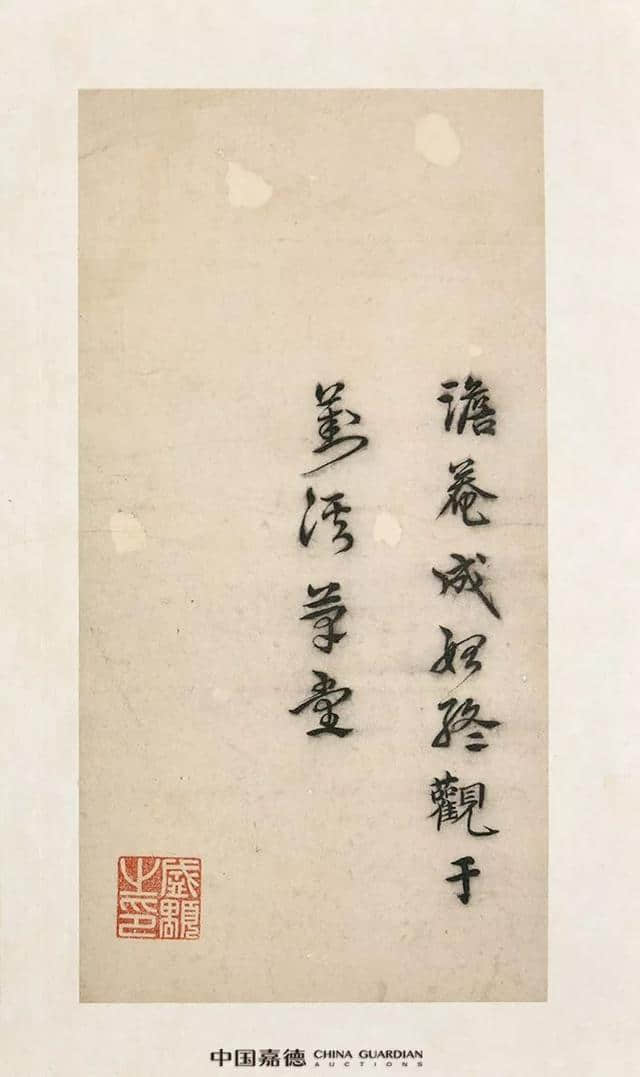 澹菴成始終觀于
葑溪草堂
盛顒
之印
中国嘉德 CHINA GUARDIAN
AUCTIONS